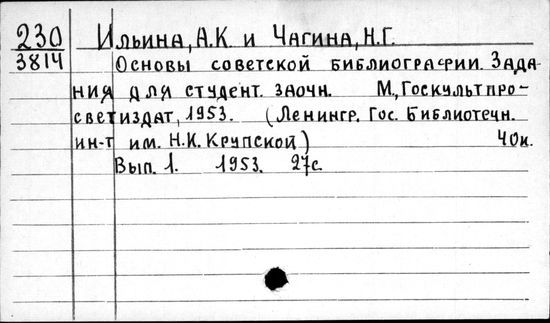 230 Ильина, А.К. и Чагина, Н.Г.
3814 Основы советской библиографии. Зада-
ния для студент. заочн. М., Госкультпро-
светиздат, 1953. (Ленингр. Гос. Библиотечн.
ин-т им. Н.К. Крупской) 40к.
Вып. 1. 1953. 27с.